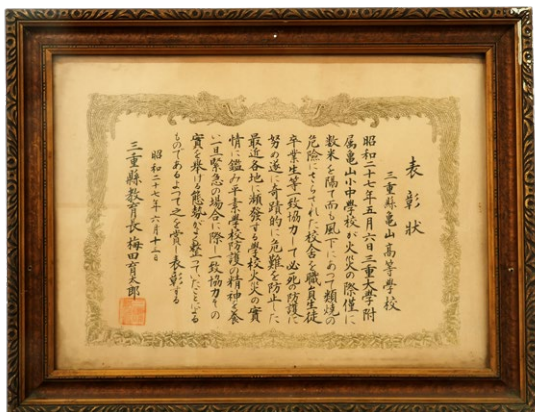 表彰狀
三重縣亀山高等學校
昭和二十七年五月六日三重大學附
属亀山小中學校が火災の際僅に
数米を隔て而も風下にあつて類焼の
危険にさらされた校舎を職員生徒
卒業生等一致協力して必死の防護に
努め遂に奇蹟的に危難を防止した
最近各地に瀕發する學校火災の實
情に鑑み平素學校防護の精神を養
い一旦緊急の場合に際し一致協力その
實を挙げる態勢がよく整つていたことによる
ものであるよつて之を賞し表彰する
昭和二十七年六月十二日
三重縣教育長 梅田育太郎